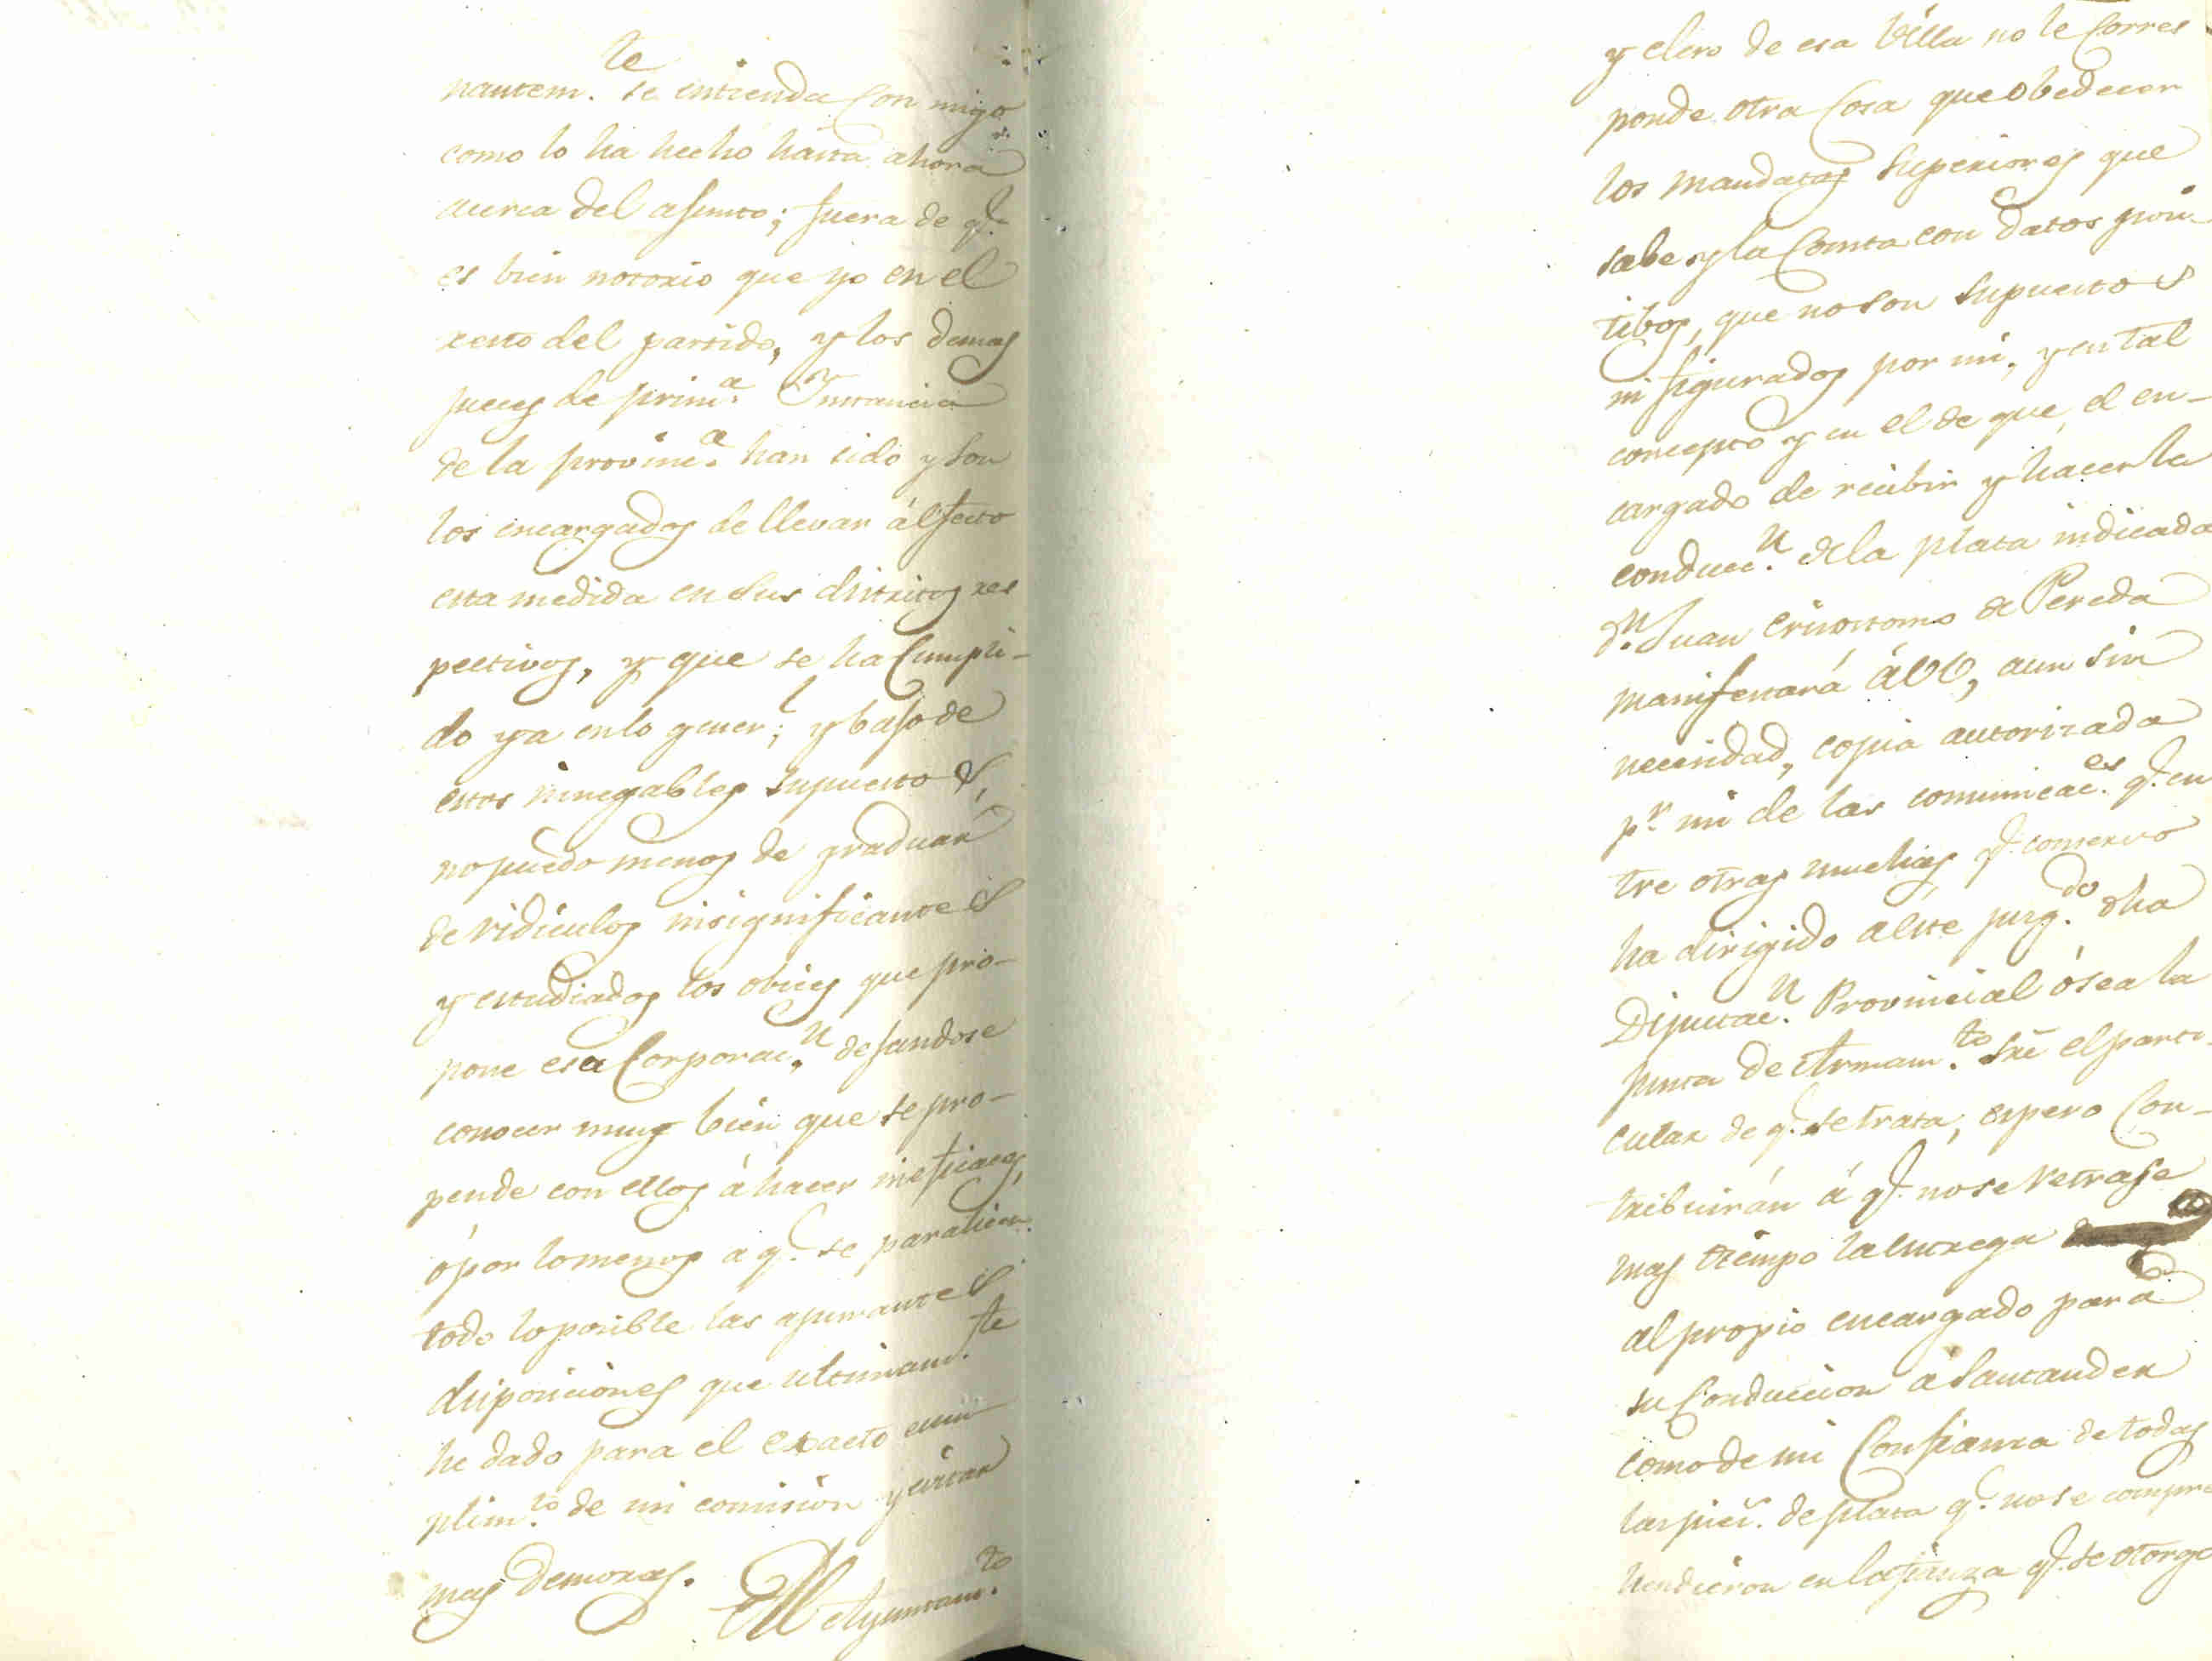 nantem.te se entienda Con migo
como lo ha hecho hasta ahora
acerca del asunto; fuera de q.e
es bien notorio que yo en el
resto del partido, y los demas
jueces de prim.a Instancia
de la provinc.a han sido y son
los encargados de llevar á efecto
esta medida en sus distritos res
pectivos, y que se ha Cumpli-
do ya en lo gener.l y bajo de
estos innegables supuestos,
no puedo menos de graduar
de ridiculos insignificantes
y estudiados los obices que pro-
pone esa Corporac.n dejandose
conocer muy bien que se pro-
pende con ellos á hacer ineficaces,
ó por lo menos a q.e se paralicen
todo lo posible las apremiantes
disposiciones que ultimam.te
he dado para el exacto cum
plim.to de mi comision y evitar
mas demoras. El Ayuntam.to
y clero de esa Villa no le Corres
ponde otra Cosa que obedecer
los mandatos Superiores que
sabe y la Consta con datos posi-
tibos, que no son supuestos
ni figurados por mi, y en tal
concepto y en el de que, el en-
cargado de recibir y hacer la
conducc.n de la plata indicada
D.n Juan Crisostomo de Pereda
manifestará á VV, aun sin
necesidad, copia autorizada
p.r mi de las comunicac.es q.e en
tre otras muchas q.e conservo
ha dirigido a este juzg.do dha
Diputac.n Provincial ó sea la
junta de Armam.to sre el parti-
cular de q.e se trata, espero Con-
tribuirán á q.e no se retrase
mas tiempo la entrega
al propio encargado para
su Conduccion á Santander
como de mi Confianza de todas
las piez.s de plata q.e no se compre
hendieron en la fianza q.e se otorgo